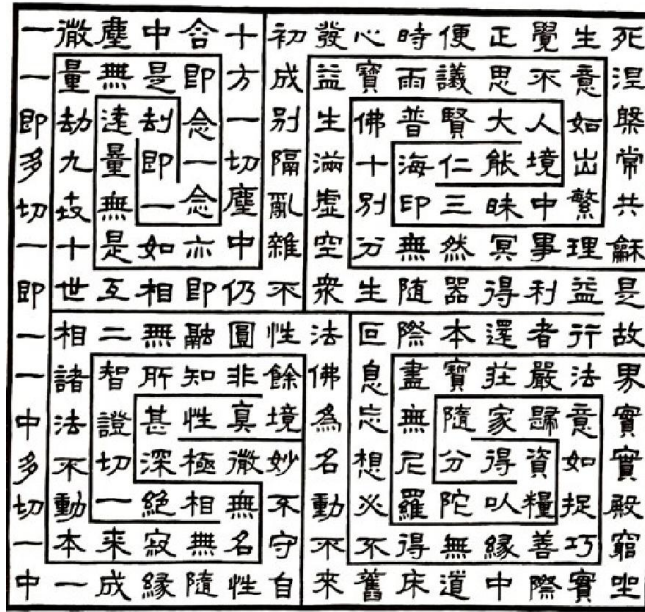 一微塵中含十初發心時便正覺生死
一量無是即方成益寶雨議思不意涅
即劫遠劫念一別生佛普賢大人如槃
多九量即一切隔滿十海仁能境出常
切世無一念塵亂虛別印三昧中繁共
一十是如亦中雜空分無然冥事理龢
即世互相即仍不衆生隨器得利益是
一相二無融圓性法叵際本還者行故
一諸智所知非餘佛息盡寶莊嚴法界
中法證甚性真境為忘無隨家歸意實
多不切深極微妙名想尼分得資如寶
切動一絕相無不動必羅陀以糧捉殿
一本來寂無名守不不得無緣善巧窮
中一成緣隨性自來舊床道中際實坐